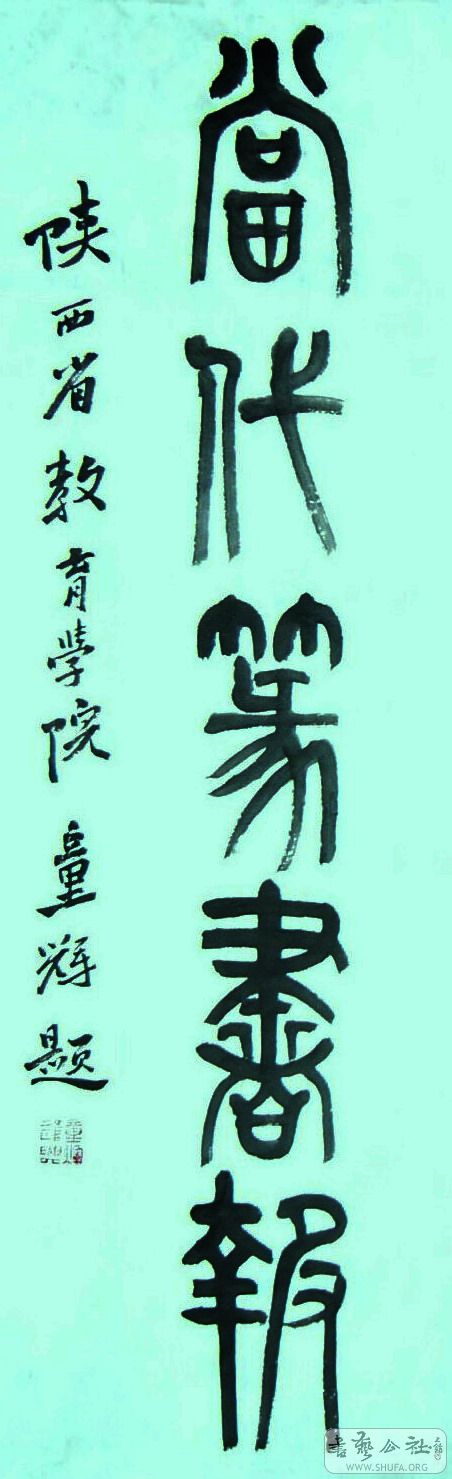 當代篆書報
陕西省教育學院 童輝題
書藝公社
WWW.SHUFA.ORG